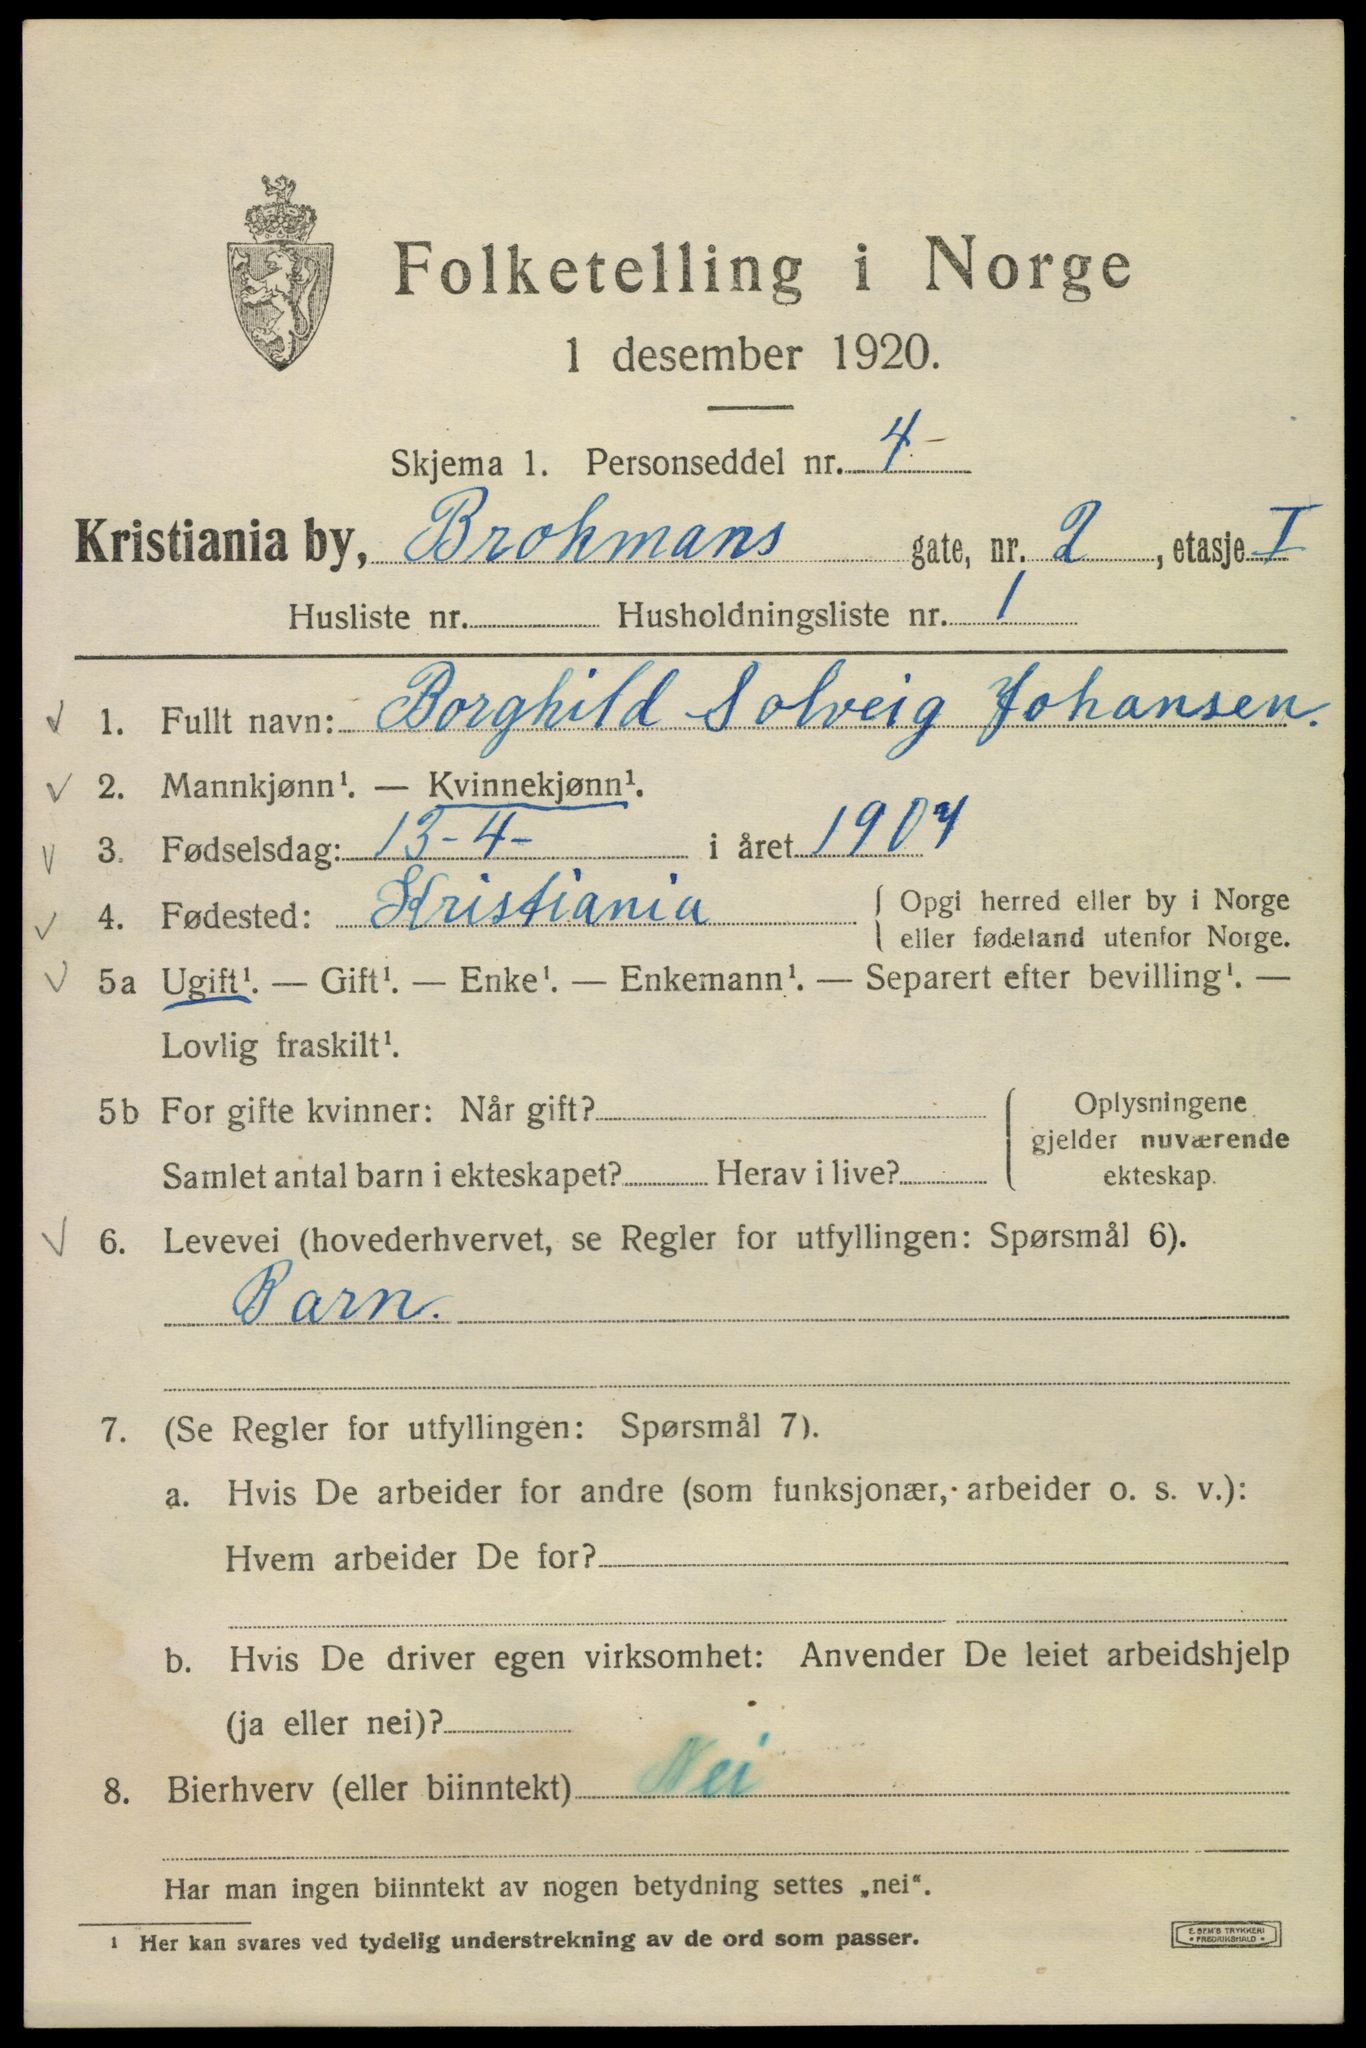 Folketelling i Norge
1 desember 1920.
Skjema 1. Personseddel nr. 4 -
Kristiania by, Brohmans gate, nr. 2, etasje I
Husliste nr. Husholdningsliste nr. 1
1. Fullt navn: Borghild Solveig Johansen.
2. Mannkjønn¹. — Kvinnekjønn¹.
3. Fødselsdag: 13-4- i året 1904
4. Fødested: Kristiania { Opgi herred eller by i Norge
eller fødeland utenfor Norge.
5a Ugift¹. — Gift¹. — Enke¹. — Enkemann¹. — Separert efter bevilling¹. —
Lovlig fraskilt¹.
5b For gifte kvinner: Når gift? { Oplysningene
gjelder nuværende
Samlet antal barn i ekteskapet? Herav i live? ekteskap.
6. Levevei (hovederhvervet, se Regler for utfyllingen: Spørsmål 6).
Barn.
7. (Se Regler for utfyllingen: Spørsmål 7).
a. Hvis De arbeider for andre (som funksjonær, arbeider o. s. v.):
Hvem arbeider De for?
b. Hvis De driver egen virksomhet: Anvender De leiet arbeidshjelp
(ja eller nei)?
8. Bierhverv (eller biinntekt) Nei
Har man ingen biinntekt av nogen betydning settes „nei“.
¹ Her kan svares ved tydelig understrekning av de ord som passer.
E SEM'S TRYKKERI
• FREDRIKSHALD •